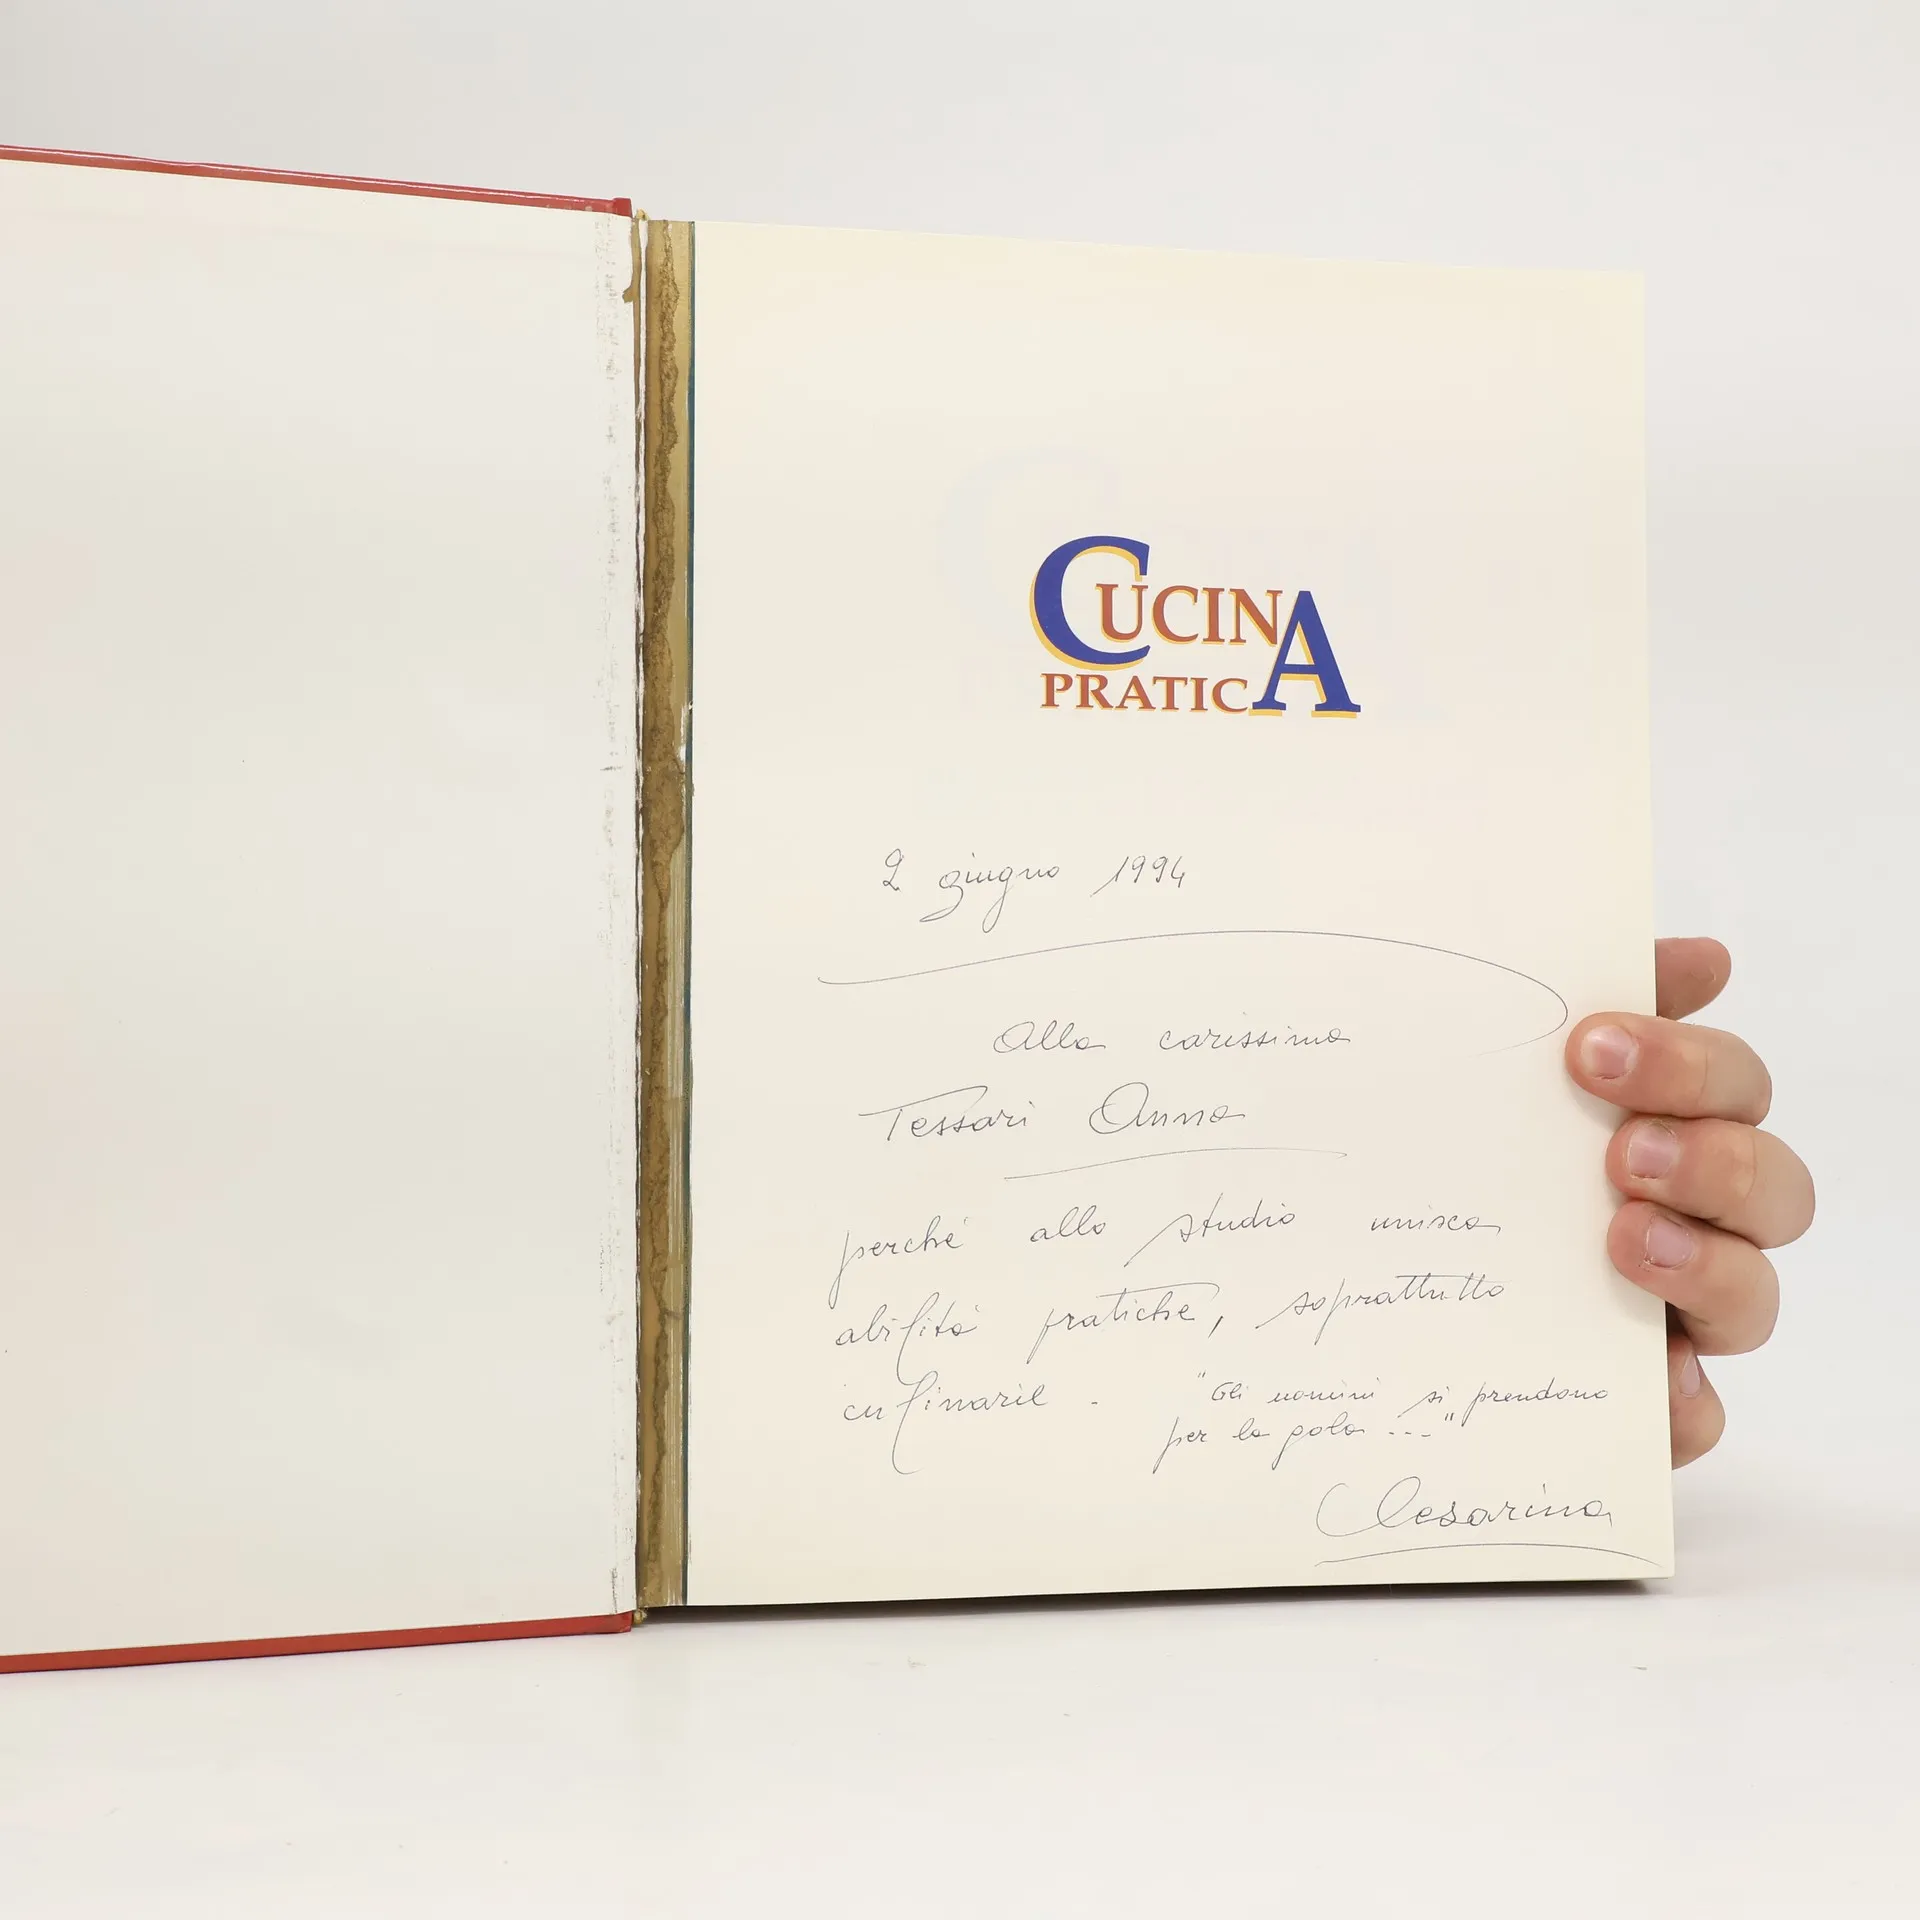 CUCINA
PRATICA
2 giugno 1994
Alla carissima
Tessari Anna
perché allo studio unisca
abilità pratiche, soprattutto
culinarie.
"Gli uomini si prendono
per la gola ..."
Cesarina